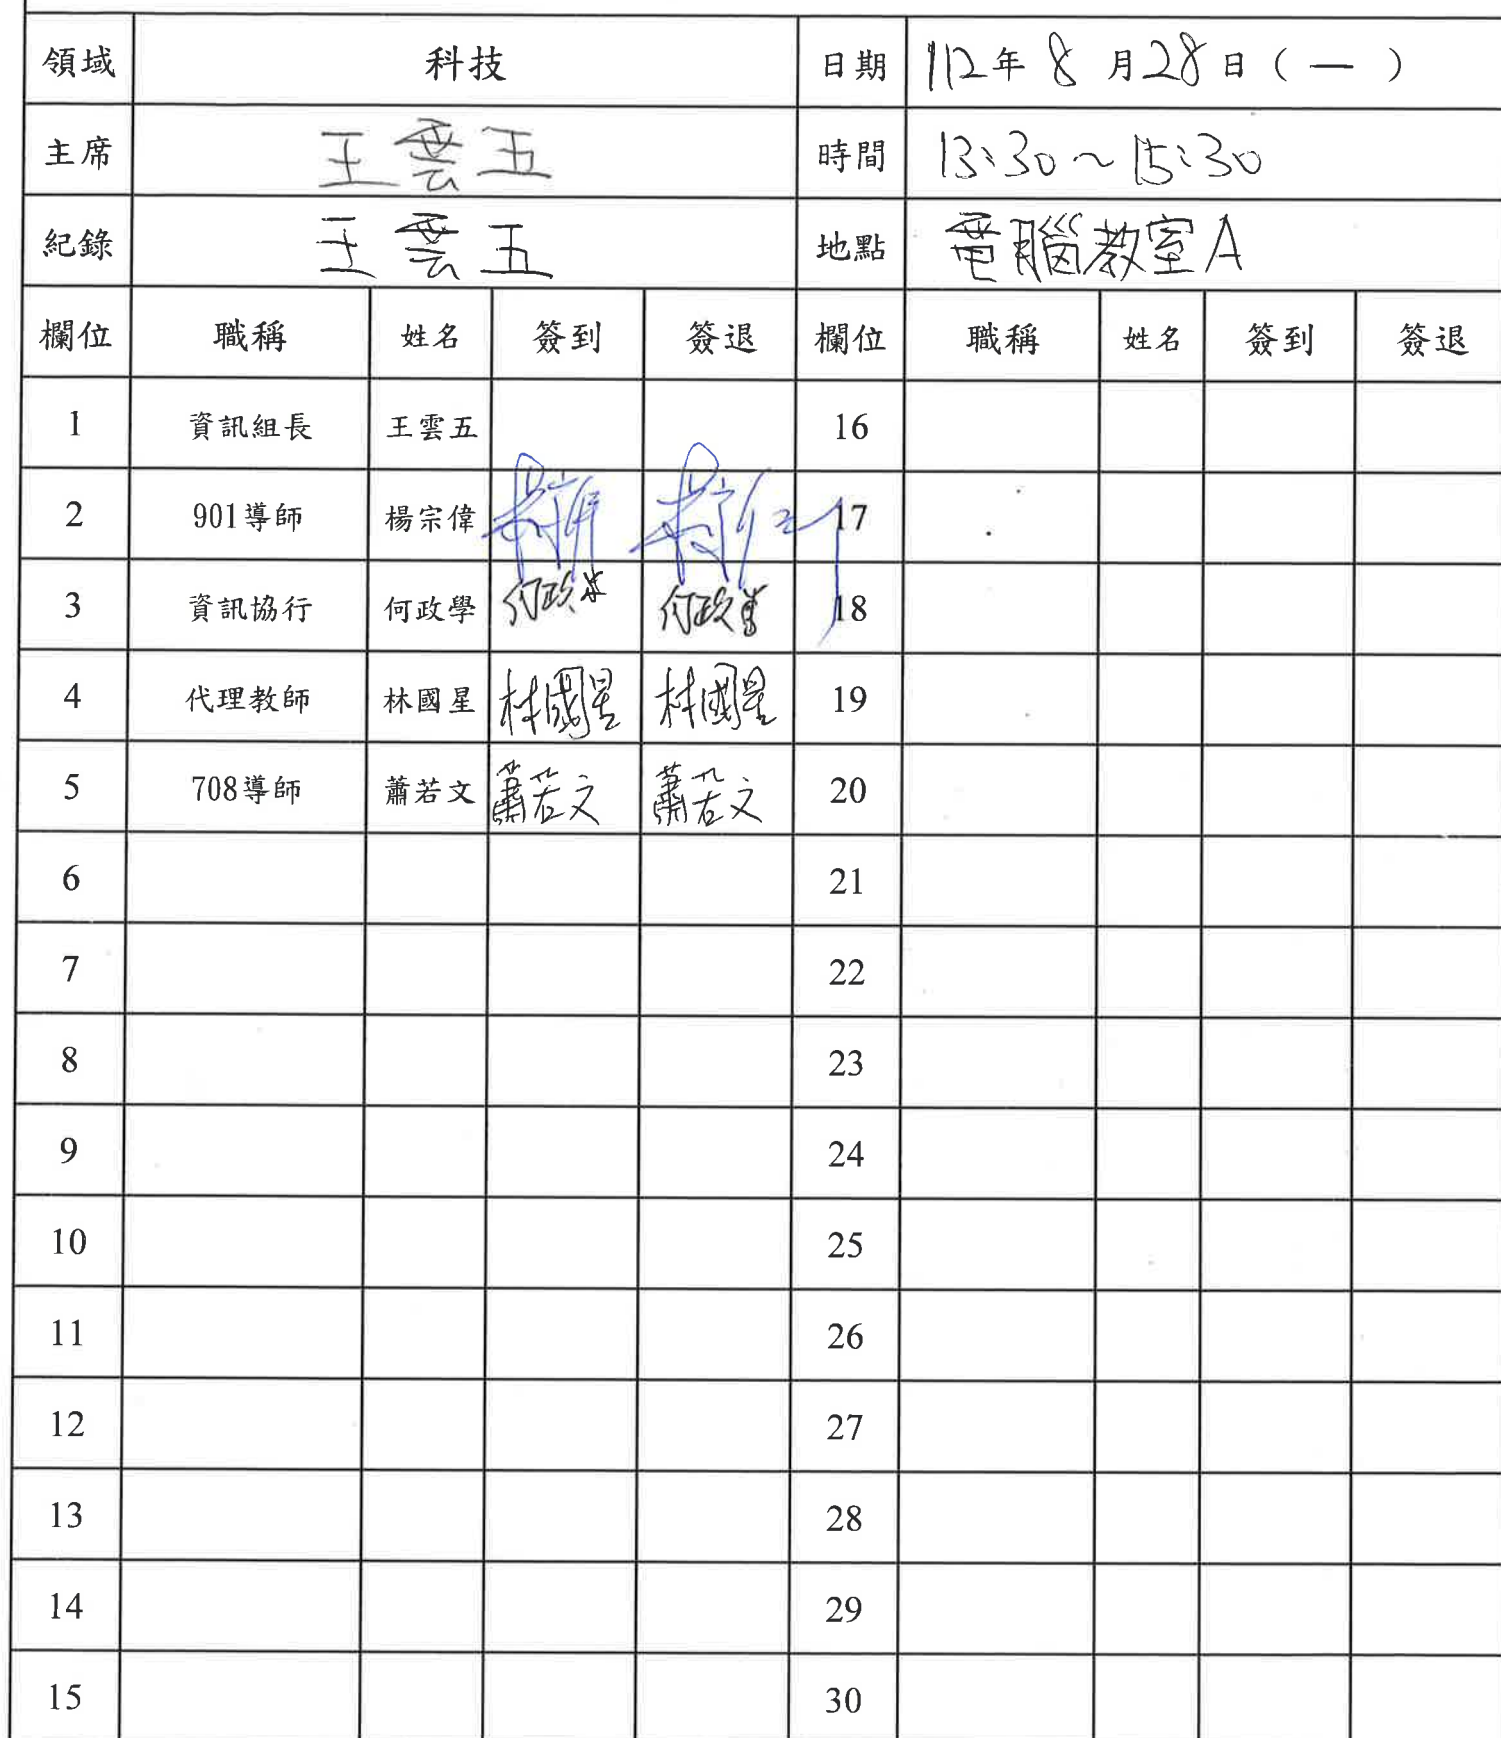 領域 科技 日期 112年8月28日(一)
主席 王雲五 時間 13:30~15:30
紀錄 王雲五 地點 電腦教室A
欄位 職稱 姓名 簽到 簽退 欄位 職稱 姓名 簽到 簽退
1 資訊組長 王雲五 16
2 901導師 楊宗偉 17
3 資訊協行 何政學 何政学 何政學 18
4 代理教師 林國星 林國星 林國星 19
5 708導師 蕭若文 蕭若文 蕭若文 20
6 21
7 22
8 23
9 24
10 25
11 26
12 27
13 28
14 29
15 30